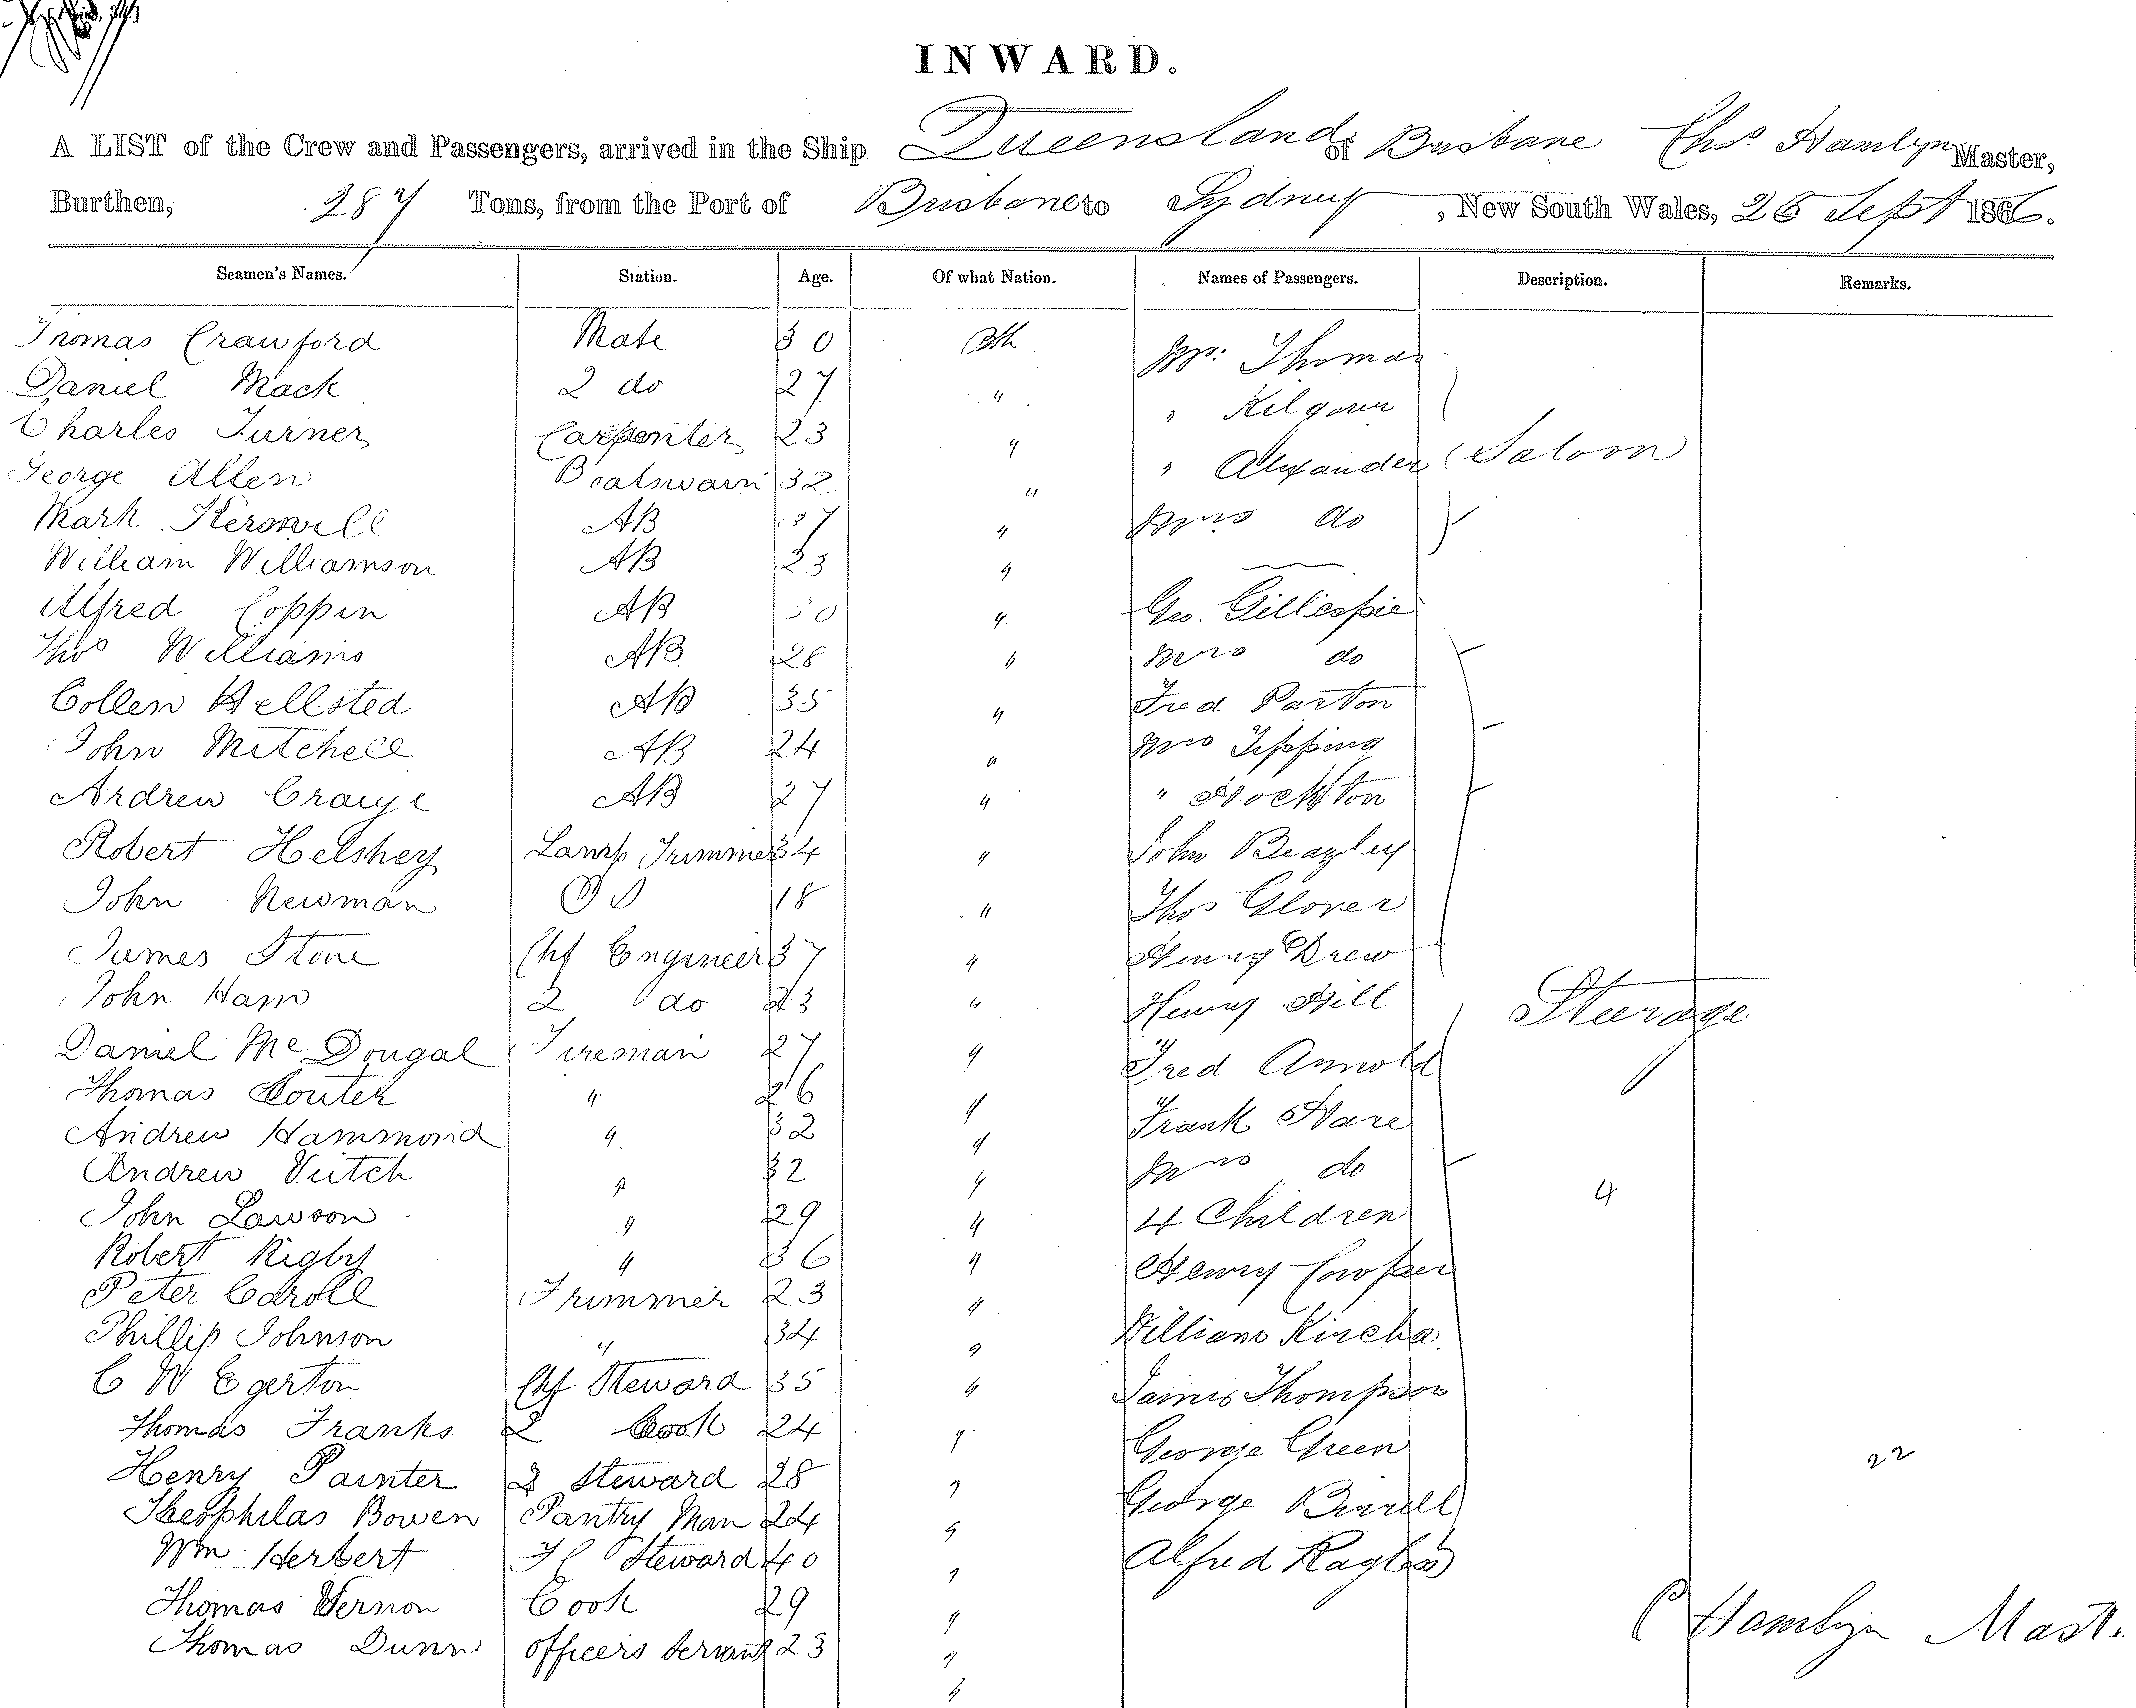 INWARD.
A LIST of the Crew and Passengers, arrived in the Ship Queensland of Brisbane Chs. Hamlyn Master,
Burthen, 287 Tons, from the Port of Brisbane to Sydney, New South Wales, 26 Sept 1866.
Seamen's Names. Station. Age. Of what Nation. Names of Passengers. Description. Remarks.
Thomas Crawford Mate 30 Mr. Thomas
Daniel Mack 2 do 27 " " Kilgour
Charles Turner Carpenter 23 " " Alexander Saloon
George Allen Boatswain 32 "
Mark AB 37 " Mrs do
William Williamson AB 23 "
Alfred Coppin AB 30 " Geo. Gillespie
Thos Williams AB 28 " Mrs do
Collen Hellsted AB 35 " Fred Parton
John Mitchell AB 24 " Mrs Tipping
Ardrew AB 27 " " Stockton
Robert Helshey Lamp Trimmer 34 " John Beazley
John Newman OS 18 " Thos Glover
James Stone Chf Engineer 37 " Henry Drew
John Ham 2 do 23 " Henry Hill Steerage
Daniel McDougal Fireman 27 " Fred Arnold
Thomas " 26 " Frank Hare
Andrew Hammond " 32 " Mrs do
Andrew Veitch " 32 "
John Lawson " 29 " 4 Children 4
Robert Rigby " 36 " Henry Cowper
Peter Caroll Trimmer 23 "
Phillip Johnson " 34 " William
C W Egerton Chf Steward 35 " James Thompson
Thomas Franks 2 Cook 24 " George Green
Henry Painter 2 Steward 28 " George Birrell 22
Theophilas Bowen Pantry Man 24 "
Wm Herbert Steward 40 " Alfred
Thomas Vernon Cook 29 "
Thomas Dunn officers servant 23 "
"
C Hamlyn Mast.